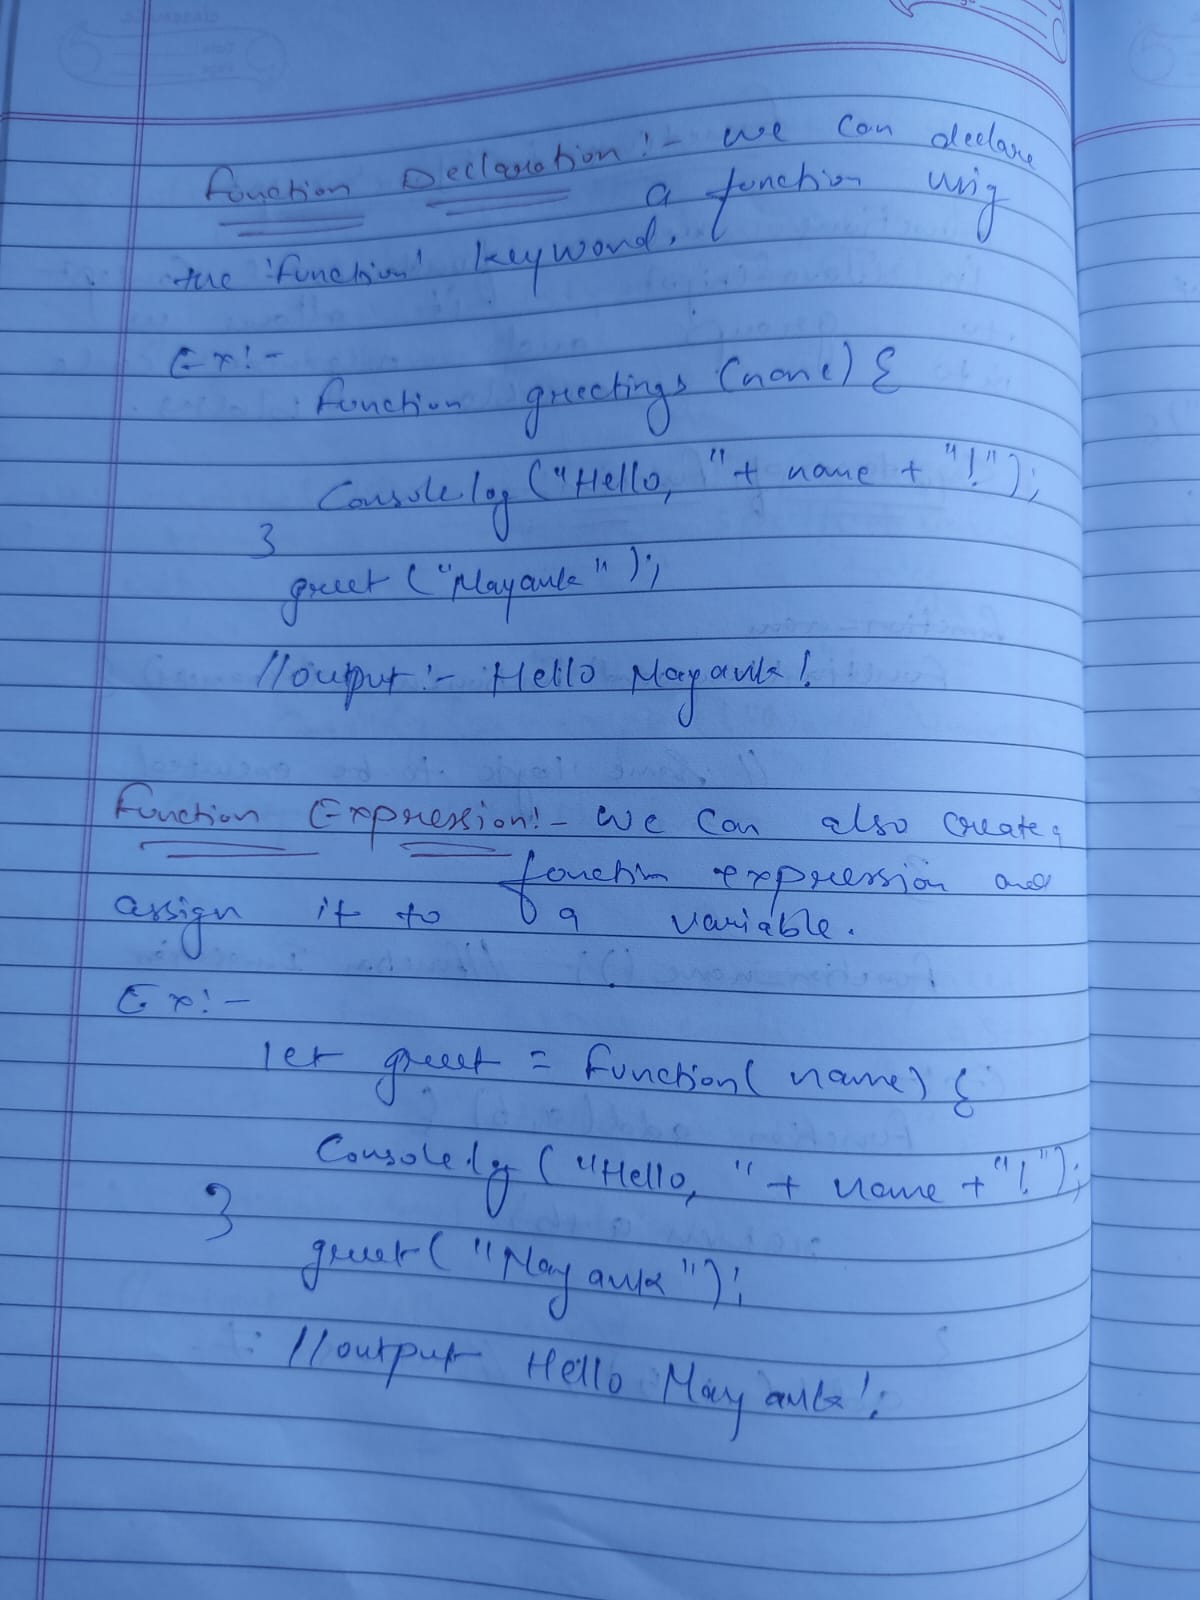 Function Declaration :- we can declare
a function using
the 'function' keyword.
Ex:-
function greetings (name) {
Console.log ("Hello, " + name + "!");
}
greet ("Mayank");
//output :- Hello Mayank!
Function Expression:- we can also create a
function expression and
assign it to a variable.
Ex:-
let greet = function( name) {
Console.log ("Hello, " + name + "!");
}
greet( "Mayank");
//output Hello Mayank!